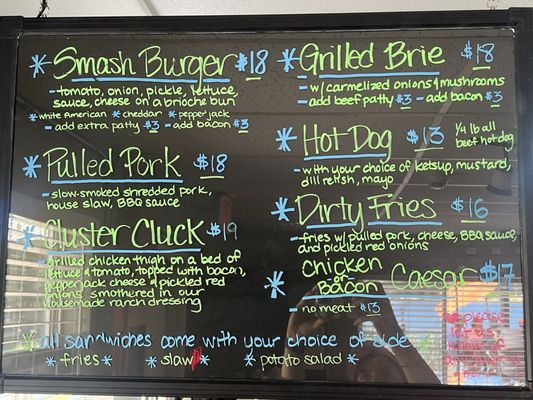 Smash Burger $18
- tomato, onion, pickle, lettuce,
sauce, cheese on a brioche bun
*white American *cheddar *pepper jack
- add extra patty $3 - add bacon $3
Pulled Pork $18
- slow-smoked shredded pork,
house slaw, BBQ sauce
Cluster Cluck $19
- Grilled chicken thigh on a bed of
lettuce & tomato, topped with bacon,
pepperjack cheese & pickled red
onions smothered in our
housemade ranch dressing
Grilled Brie $18
- w/ carmelized onions & mushrooms
- add beef patty $3 - add bacon $3
Hot Dog $13 1/4 lb all
beef hot dog
- with your choice of ketsup, mustard,
dill relish, mayo
Dirty Fries $16
- fries w/ pulled pork, cheese, BBQ sauce,
and pickled red onions
Chicken
or
Bacon Caesar $17
- no meat $13
all sandwiches come with your choice of side
*fries* *slaw* *potato salad*
please
let us
know